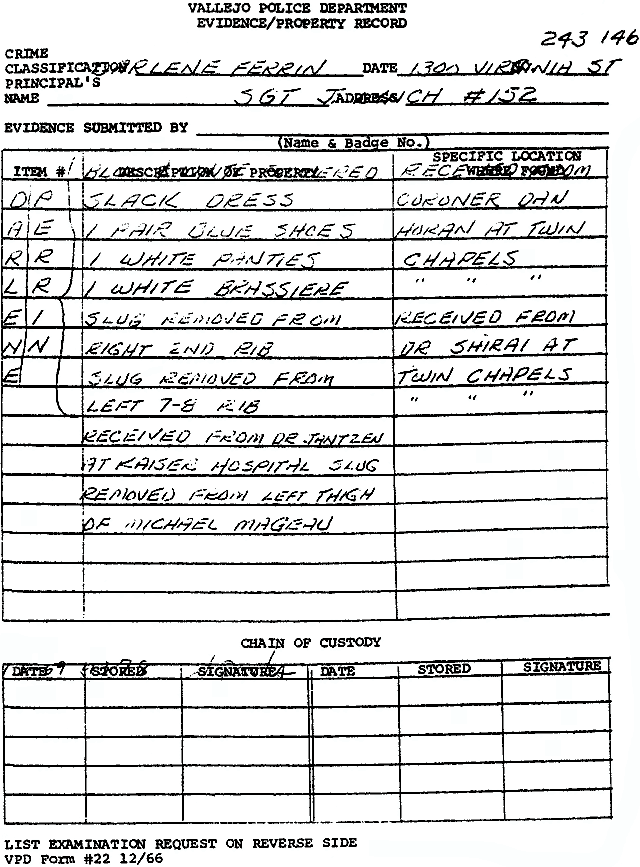 VALLEJO POLICE DEPARTMENT
EVIDENCE/PROPERTY RECORD
243 146
CRIME
CLASSIFICATION DARLENE FERRIN DATE 1300 VIRGINIA ST
PRINCIPAL'S
NAME SGT ADDRESS #152
EVIDENCE SUBMITTED BY
(Name & Badge No.)
ITEM # DESCRIPTION OF PROPERTY SPECIFIC LOCATION WHERE FOUND
D P SLACK DRESS CORONER DAN
A E 1 PAIR BLUE SHOES HORAN AT TWIN
R R 1 WHITE PANTIES CHAPELS
L R 1 WHITE BRASSIERE " " "
E I SLUG REMOVED FROM RECEIVED FROM
N N RIGHT 2ND RIB DR SHIRAI AT
E SLUG REMOVED FROM TWIN CHAPELS
LEFT 7-8 RIB " " "
RECEIVED FROM DR JANTZEN
AT KAISER HOSPITAL SLUG
REMOVED FROM LEFT THIGH
OF MICHAEL MAGEAU
CHAIN OF CUSTODY
DATE STORED SIGNATURE DATE STORED SIGNATURE
LIST EXAMINATION REQUEST ON REVERSE SIDE
VPD Form #22 12/66